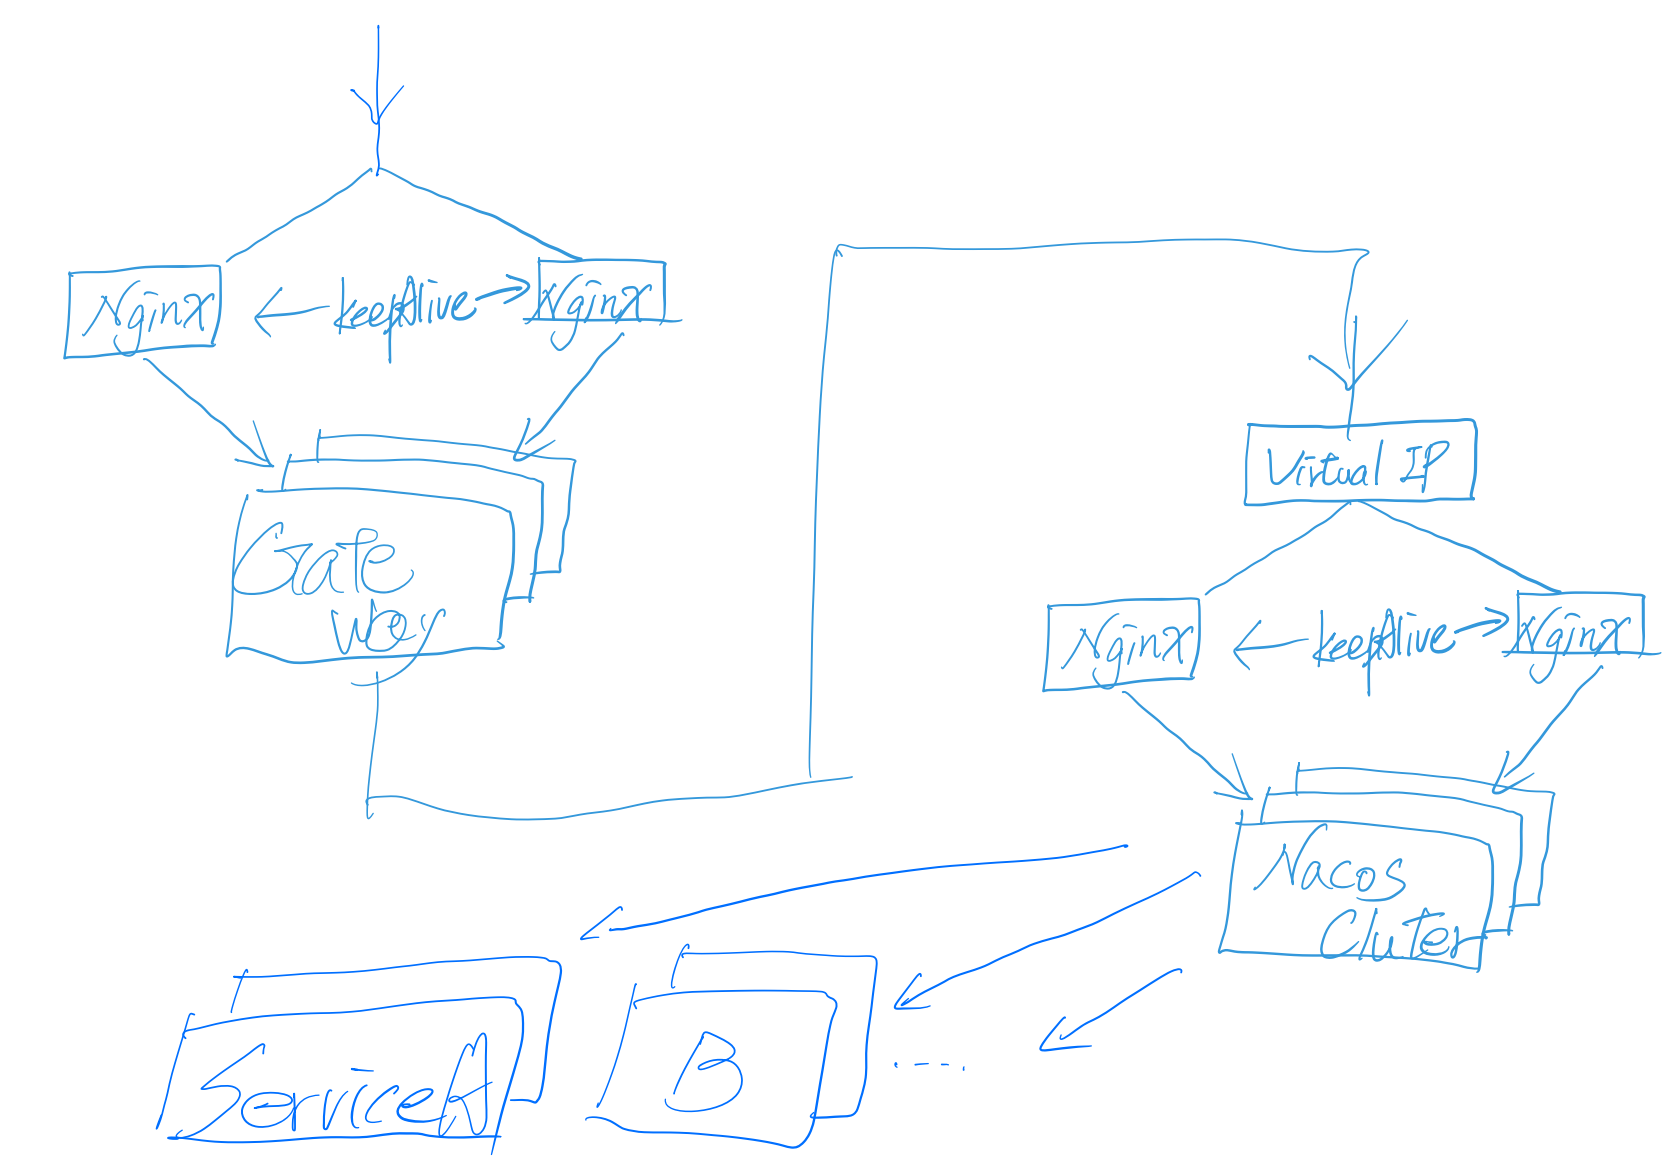 Nginx
keepAlive
Nginx
Gate
way
Virtual IP
Nginx
keepAlive
Nginx
Nacos
Cluter
ServiceA
B
....